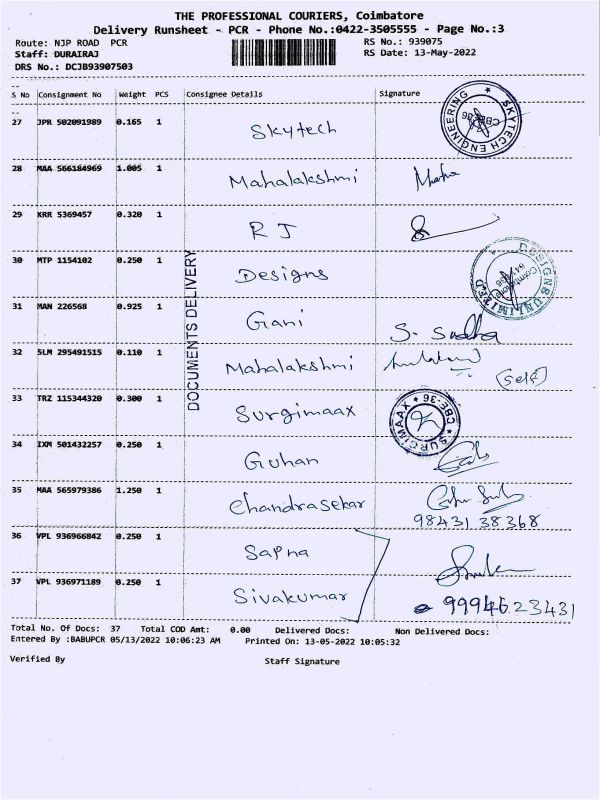 THE PROFESSIONAL COURIERS, Coimbatore
Delivery Runsheet - PCR - Phone No.:0422-3505555 - Page No.:3
Route: NJP ROAD PCR
RS No.: 939075
Staff: DURAIRAJ
RS Date: 13-May-2022
DRS No.: DCJB93907503
S No Consignment No Weight PCS Consignee Details Signature
27 JPR 502091989 0.165 1 Skytech
SKYTECH ENGINEERING CBE-36
28 MAA 566184969 1.005 1 Mahalakshmi
29 KRR 5369457 0.320 1 R J
30 MTP 1154102 0.250 1 Designs
DESIGNS UNLIMITED
DOCUMENTS DELIVERY
31 MAN 226568 0.925 1 Gani S. Sudha
32 SLM 295491515 0.110 1 Mahalakshmi (Self)
33 TRZ 115344320 0.300 1 Surgimaax
SURGIMAAX CBE-36
34 IXM 501432257 0.250 1 Guhan
35 MAA 565979386 1.250 1 Chandrasekar
98431 38368
36 VPL 936966842 0.250 1 Sapna
37 VPL 936971189 0.250 1 Sivakumar 9994623431
Total No. Of Docs: 37 Total COD Amt: 0.00 Delivered Docs: Non Delivered Docs:
Entered By :BABUPCR 05/13/2022 10:06:23 AM Printed On: 13-05-2022 10:05:32
Verified By Staff Signature